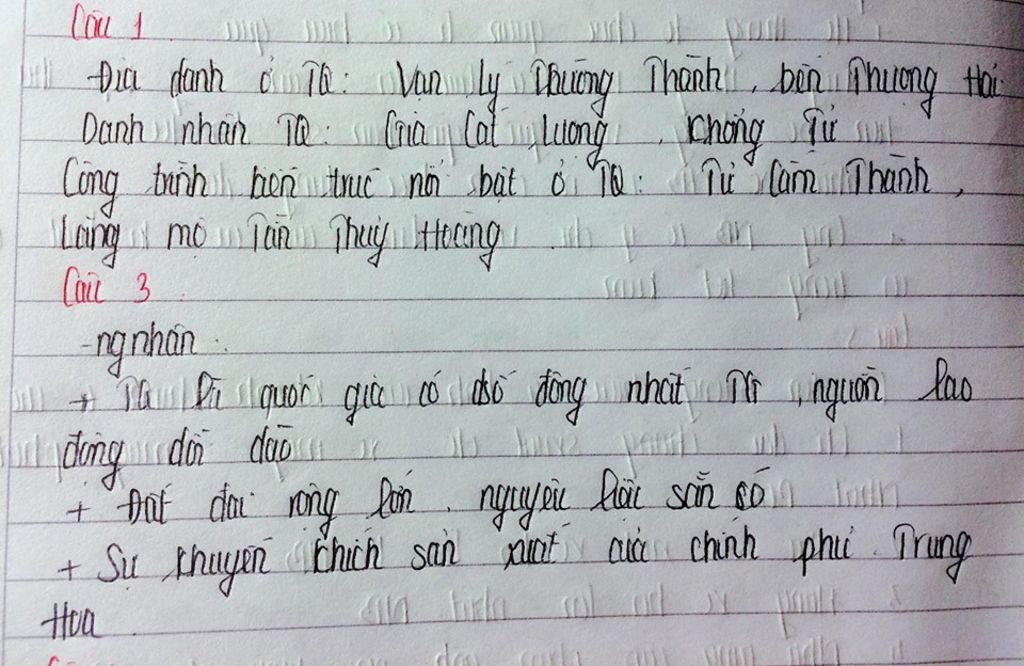 Câu 1
Địa danh ở TQ: Vạn Lý Trường Thành, bến Thượng Hải
Danh nhân TQ: Gia Cát Lượng, Khổng Tử
Công trình kiến trúc nổi bật ở TQ: Tử Cấm Thành,
Lăng mộ Tần Thủy Hoàng
Câu 3
- ng nhân:
+ TQ là quốc gia có dsố đông nhất TG, nguồn lao
động dồi dào
+ Đất đai rộng lớn, nguyên liệu sẵn có
+ Sự khuyến khích sản xuất của chính phủ Trung
Hoa